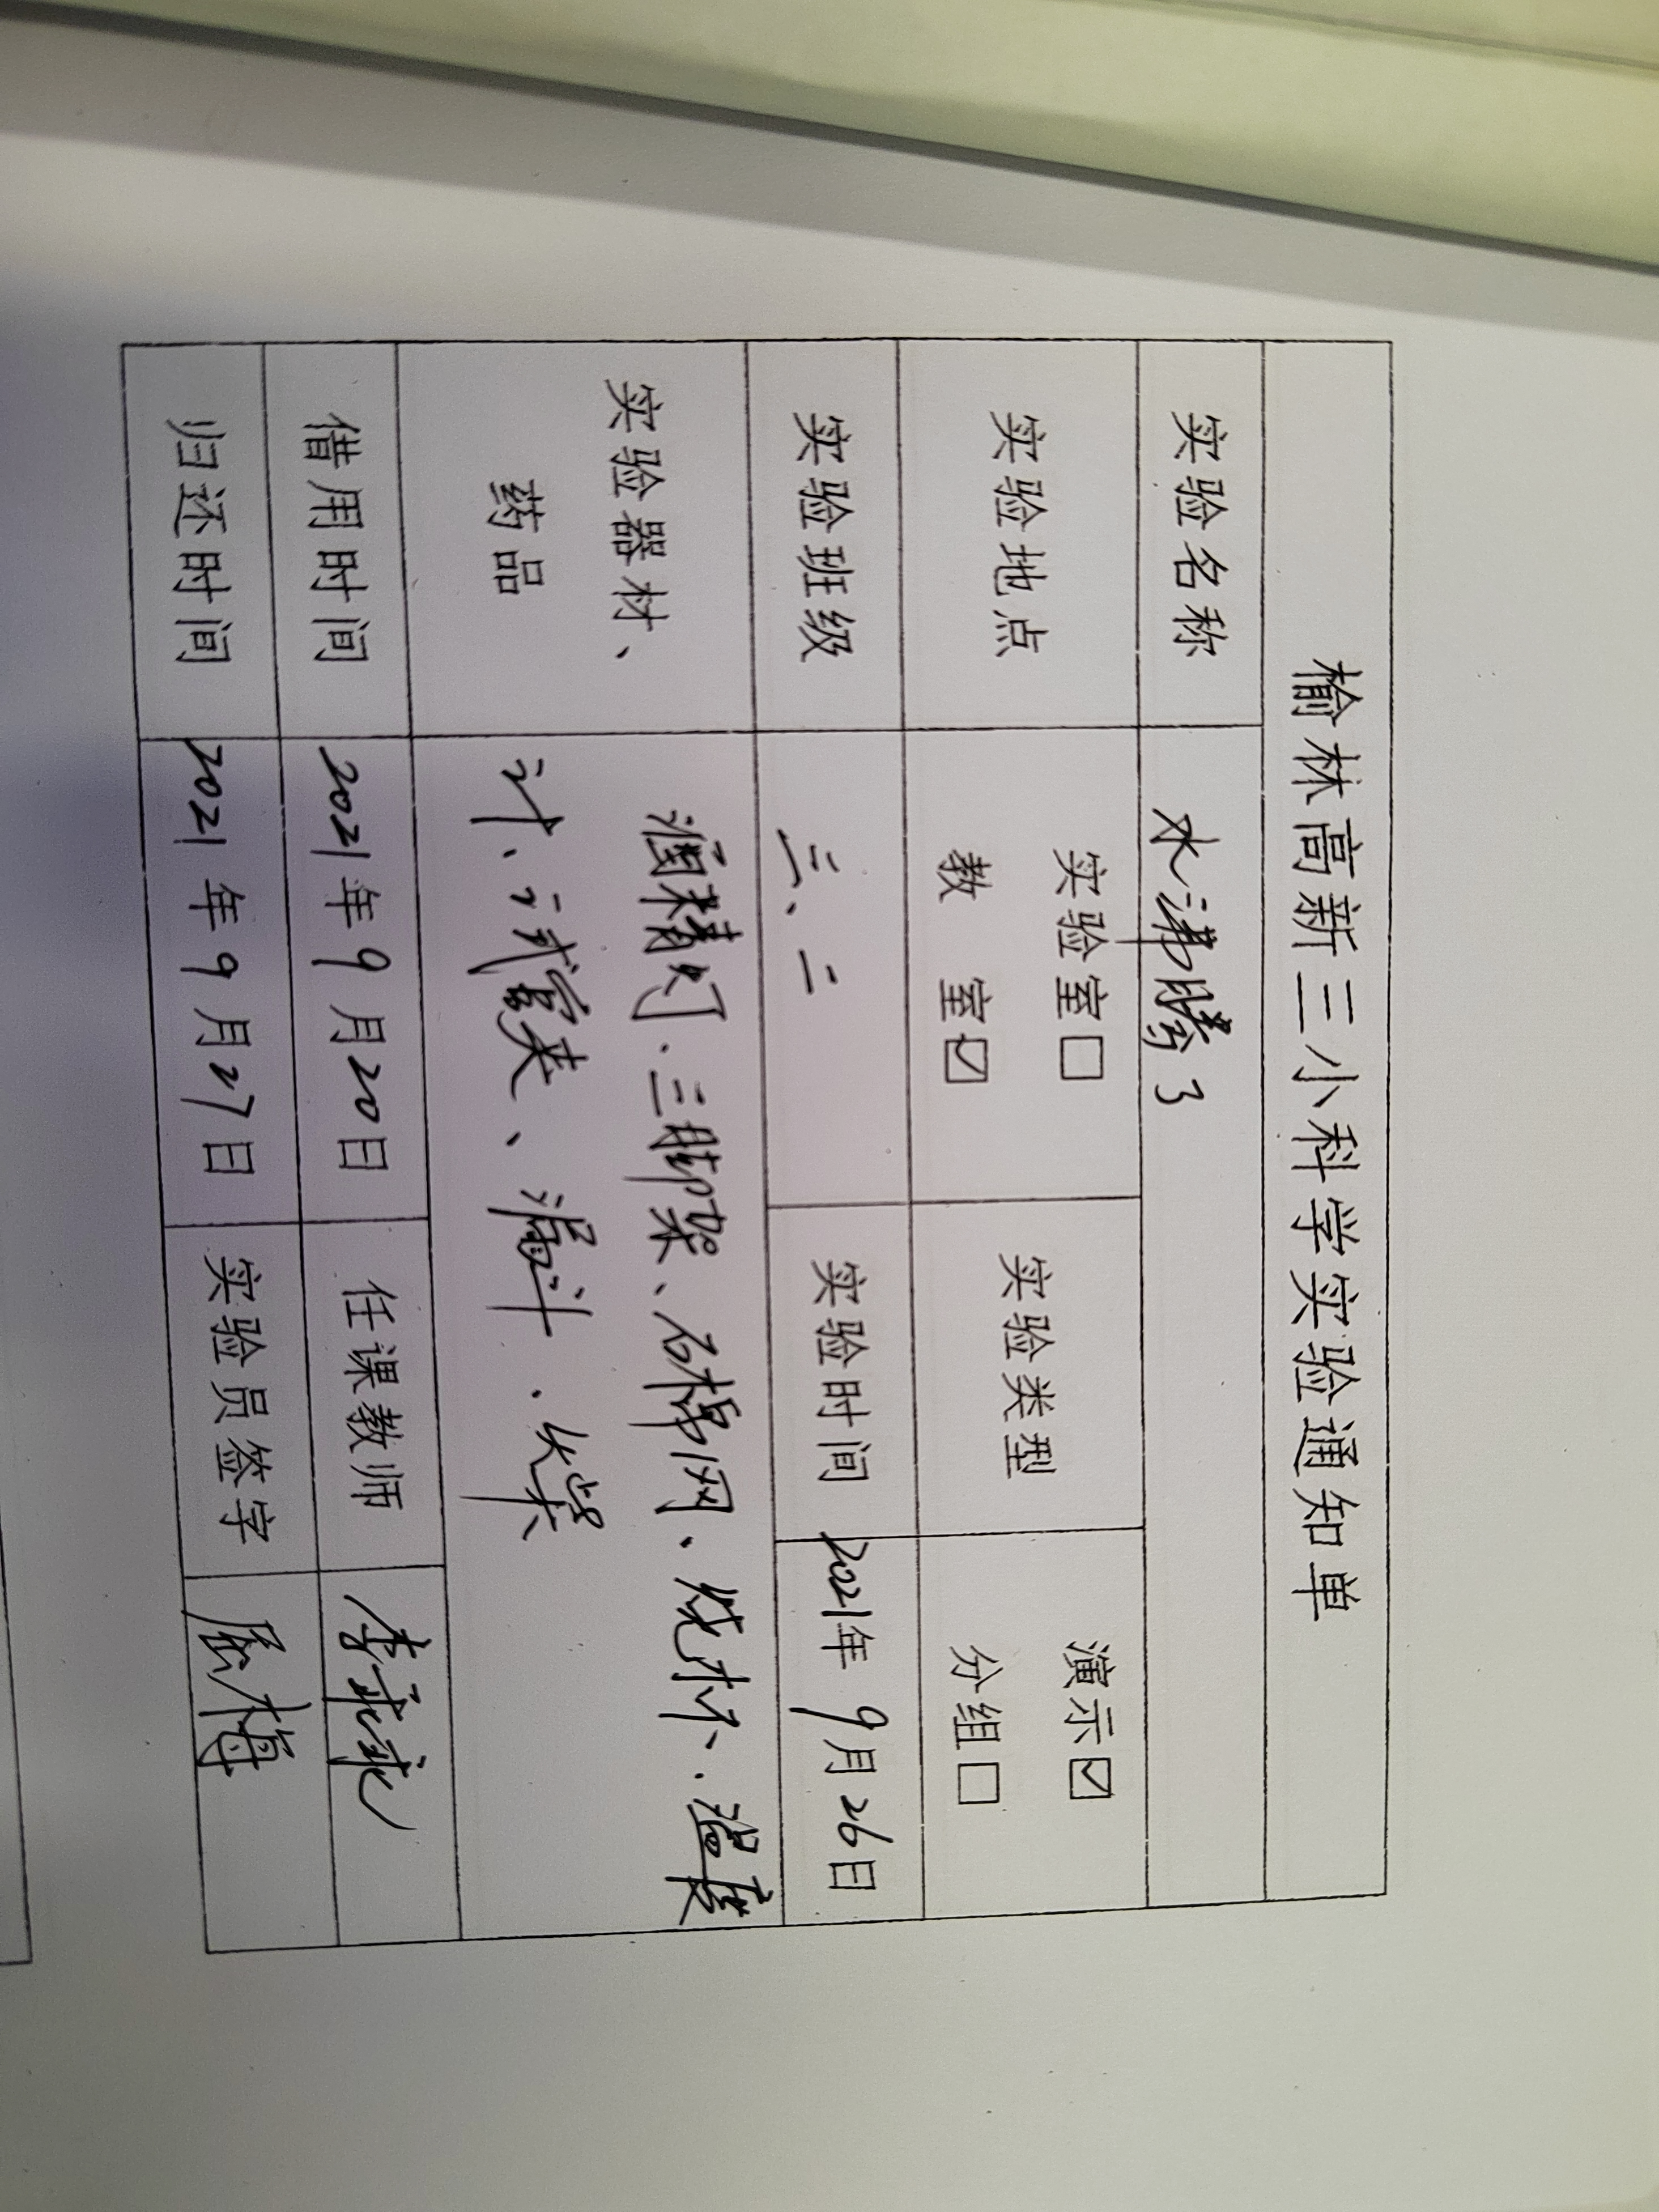 榆林高新三小科学实验通知单
实验名称 水沸腾了
实验地点 实验室☐ 教 室☑ 实验类型 演示☑ 分组☐
实验班级 三、二 实验时间 2021年9月26日
实验器材、药品 酒精灯、三脚架、石棉网、烧杯、温度
计、试管夹、漏斗、火柴
借用时间 2021年9月20日 任课教师 李
归还时间 2021年9月27日 实验员签字 梅